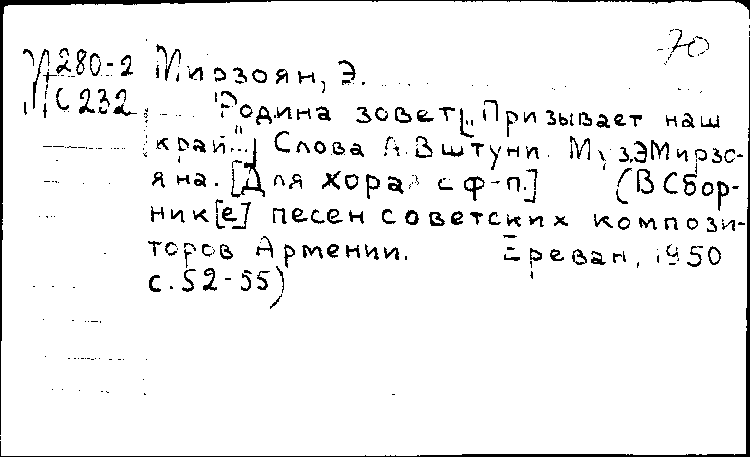 -70
М280-2 Мирзоян, Э.
С232 Родина зовет[„Призывает наш
край..."] Слова А.Вштуни. Муз.Э Мирзо-
яна. [Для хора с ф-п.] (В Сбор-
ник[е] песен советских компози-
торов Армении. Ереван, 1950
с. 52-55)